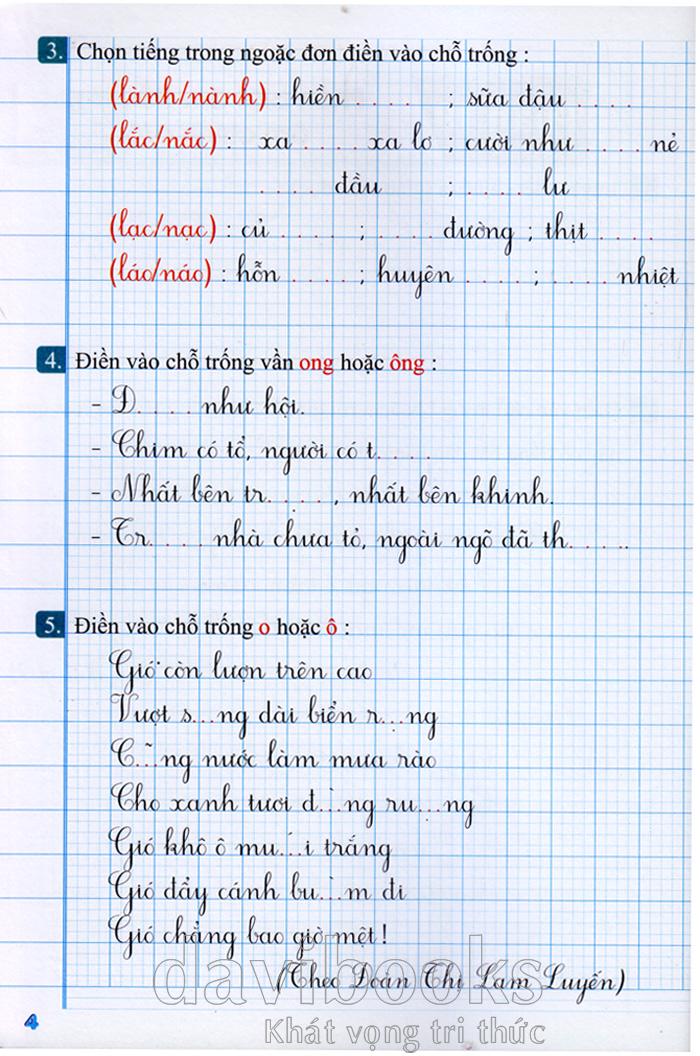 3. Chọn tiếng trong ngoặc đơn điền vào chỗ trống :
(lành/nành) : hiền . . . . ; sữa đậu . . . .
(lắc/nắc) : xa . . . . xa lơ ; cười như . . . . nẻ
. . . . đầu ; . . . . lư
(lạc/nạc) : củ . . . . ; . . . . đường ; thịt . . . .
(láo/náo) : hỗn . . . . ; huyên . . . . ; . . . . nhiệt
4. Điền vào chỗ trống vần ong hoặc ông :
- Đ. . . . như hội.
- Chim có tổ, người có t. . . .
- Nhất bên tr. . . . , nhất bên khinh.
- Tr. . . . nhà chưa tỏ, ngoài ngõ đã th. . . . .
5. Điền vào chỗ trống o hoặc ô :
Gió còn lượn trên cao
Vượt s...ng dài biển r...ng
C..̃.ng nước làm mưa rào
Cho xanh tươi đ..̀.ng ru...ng
Gió khô ô mu..́.i trắng
Gió đẩy cánh bu..̀.m đi
Gió chẳng bao giờ mệt !
(Theo Đoàn Thị Lam Luyến)
davibooks
Khát vọng tri thức
4